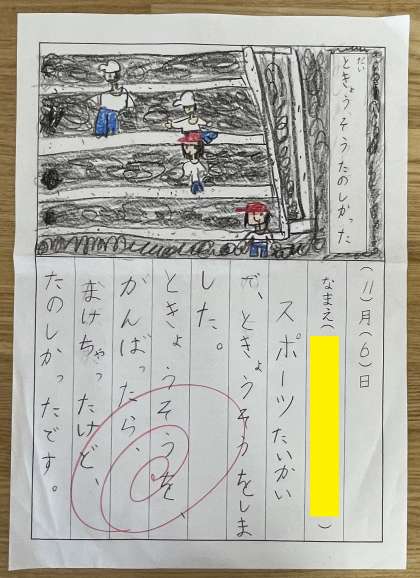 だい
ときょうそうたのしかった
(11)月(6)日
なまえ( )
スポーツたいかい
で、ときょうそうをしま
した。
ときょうそうを、
がんばったら、
まけちゃったけど、
たのしかったです。